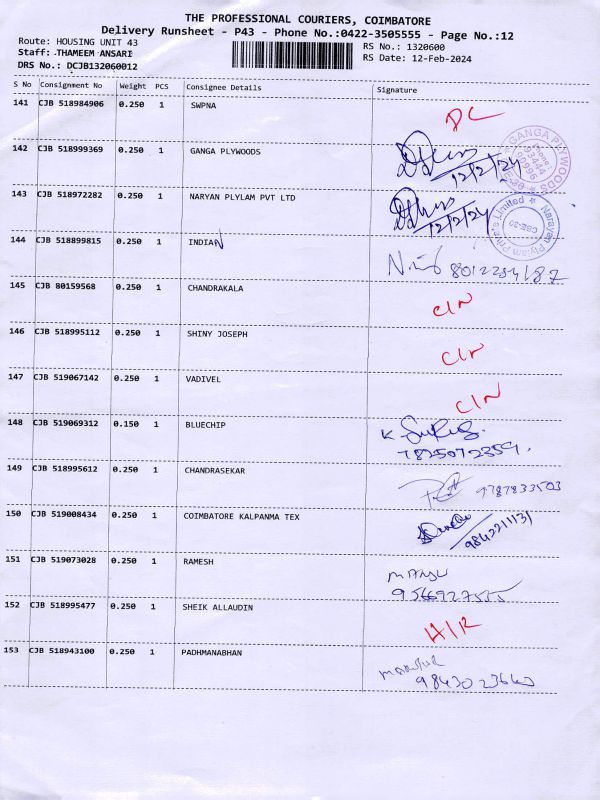 THE PROFESSIONAL COURIERS, COIMBATORE
Delivery Runsheet - P43 - Phone No.:0422-3505555 - Page No.:12
Route: HOUSING UNIT 43
RS No.: 1320600
Staff: THAMEEM ANSARI
RS Date: 12-Feb-2024
DRS No.: DCJB132060012
S No Consignment No Weight PCS Consignee Details Signature
141 CJB 518984906 0.250 1 SWPNA DC
142 CJB 518999369 0.250 1 GANGA PLYWOODS 12/2/24
GANGA PLYWOODS
143 CJB 518972282 0.250 1 NARYAN PLYLAM PVT LTD 12/2/24
Narayan Plylam Private Limited
144 CJB 518899815 0.250 1 INDIAN
145 CJB 80159568 0.250 1 CHANDRAKALA C/N
146 CJB 518995112 0.250 1 SHINY JOSEPH C/N
147 CJB 519067142 0.250 1 VADIVEL C/N
148 CJB 519069312 0.150 1 BLUECHIP
7825072359
149 CJB 518995612 0.250 1 CHANDRASEKAR 9787833503
150 CJB 519008434 0.250 1 COIMBATORE KALPANMA TEX
9842211131
151 CJB 519073028 0.250 1 RAMESH
152 CJB 518995477 0.250 1 SHEIK ALLAUDIN
153 CJB 518943100 0.250 1 PADHMANABHAN
9843023640